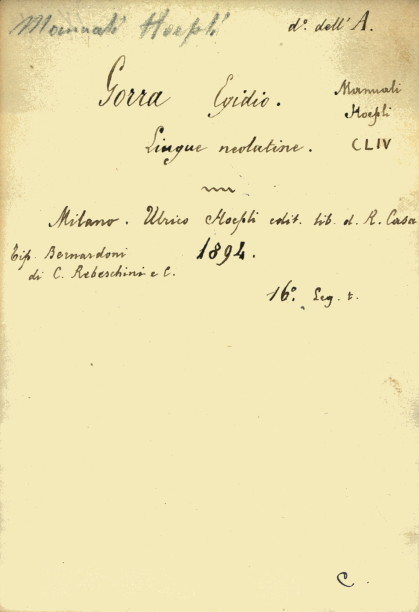 Manuali Hoepli
d.º dell'A.
Gorra Egidio.
Manuali
Hoepli
CLIV
Lingue neolatine.
Milano. Ulrico Hoepli edit. lib. d. R. Casa
Tip. Bernardoni
di C. Rebeschini e C.
1894.
16.º Leg. t.
C